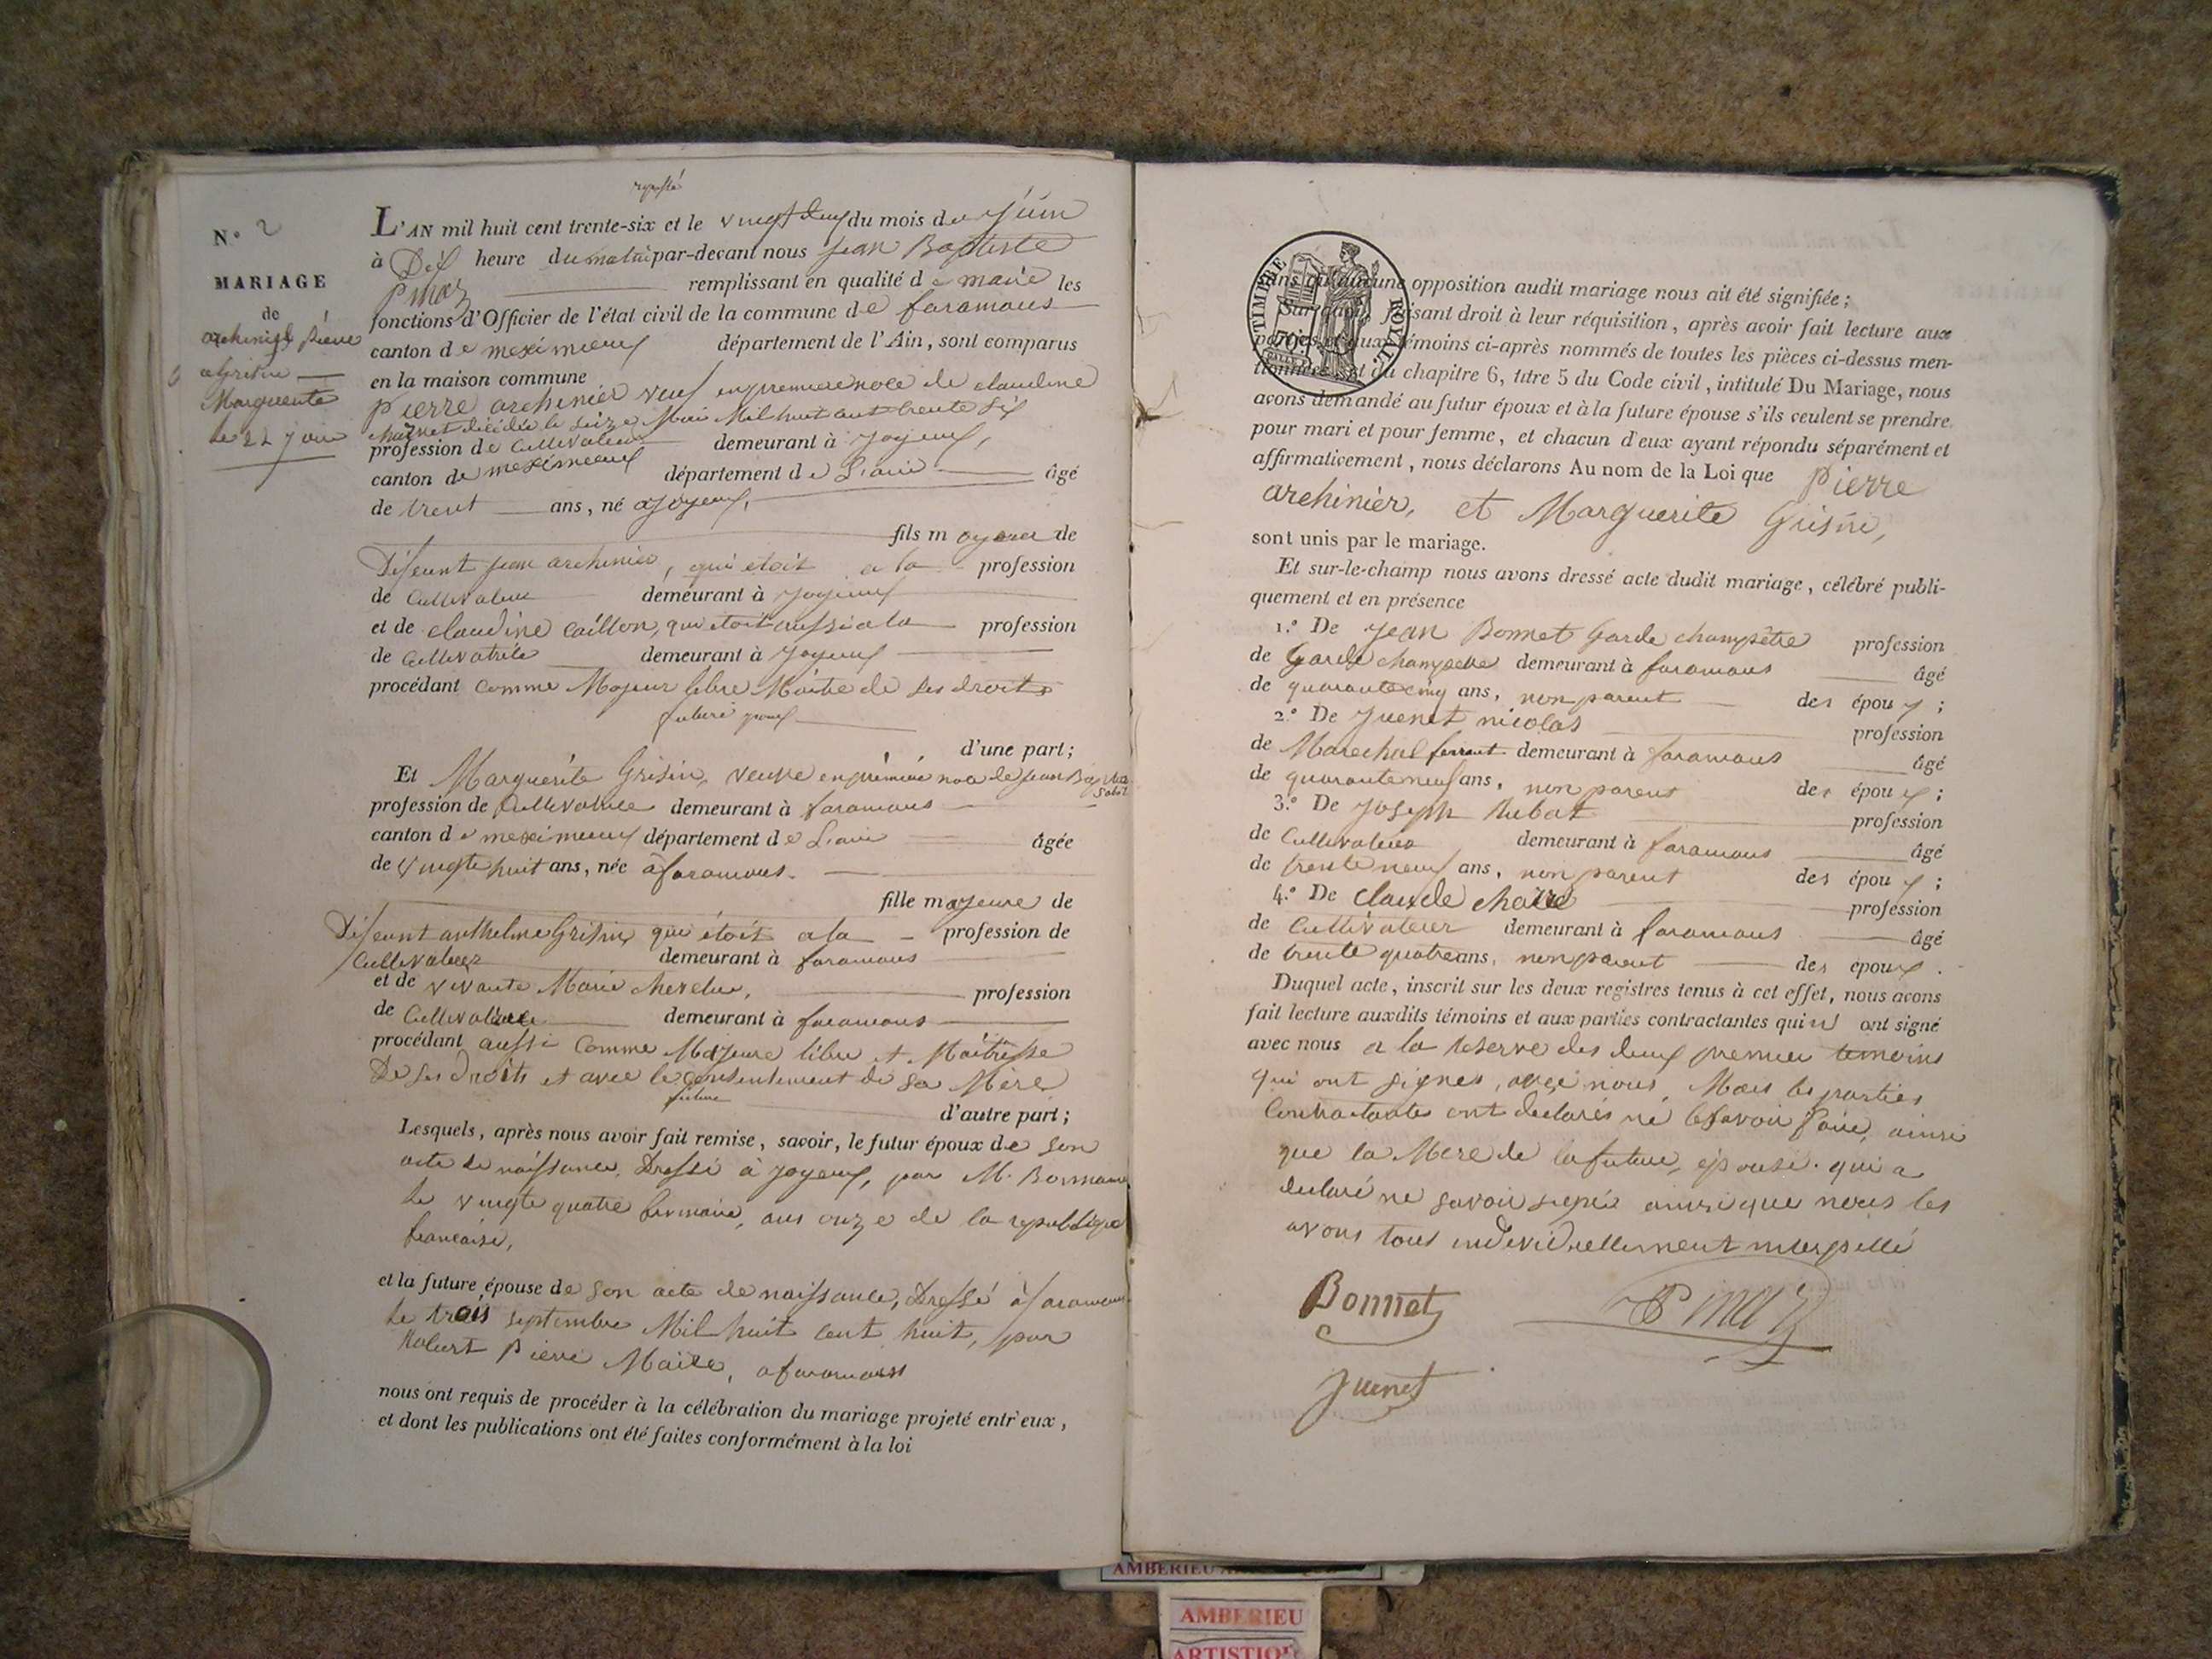 N.° 2
MARIAGE
de
archinier pierre
a Grisin
Marguerite
le 22 juin
L'AN mil huit cent trente-six et le vingt deux du mois de Juin
à Dix heure du matin par-devant nous Jean Baptiste
remplissant en qualité de maire les
fonctions d'Officier de l'état civil de la commune de faramans
canton de meximieux département de l'Ain, sont comparus
en la maison commune
pierre archinier veuf en premiere noce de claudine
décédée le seize Mai Mil huit cent trente six
profession de Cultivateur demeurant à Joyeux,
canton de meximieux département de L'ain âgé
de trent ans, né a Joyeux,
fils majeur de
Défeunt jean archinier, qui etoit a la profession
de Cultivateur demeurant à Joyeux
et de claudine caillon, qui etoit aussi a la profession
de Cultivatrice demeurant à Joyeux
procédant comme Majeur libre Maitre de ses droits
futuré
d'une part;
Et Marguérite Grisin, veuve en première noce de Jean Baptiste
profession de Cultivatrice demeurant à faramans
canton de meximieux département de L'ain âgée
de vingte huit ans, née à faramans.
fille majeure de
Défeunt anthelme Grisin, qui étoit a la profession de
Cultivateur demeurant à faramans
et de vivante Marie profession
de Cultivatrice demeurant à faramans
procédant aussi comme Majeure libre et Maitresse
De ses Droits et avec le consentement de sa Mère
future
d'autre part;
Lesquels, après nous avoir fait remise, savoir, le futur époux de son
acte de naissance, Dressé à Joyeux, par M.
le vingte quatre ans onze de la republique
francaise,
et la future épouse de son acte de naissance, Dressé à faramans
le trois septembre Mil huit cent huit, par
pierre Maire, a faramans
nous ont requis de procéder à la célébration du mariage projeté entr'eux,
et dont les publications ont été faites conformément à la loi
TIMBRE ROYAL
opposition audit mariage nous ait été signifiée;
faisant droit à leur réquisition, après avoir fait lecture aux
témoins ci-après nommés de toutes les pièces ci-dessus men-
tionnées et du chapitre 6, titre 5 du Code civil, intitulé Du Mariage, nous
avons demandé au futur époux et à la future épouse s'ils veulent se prendre
pour mari et pour femme, et chacun d'eux ayant répondu séparément et
affirmativement, nous déclarons Au nom de la Loi que pierre
archinier, et Marguerite Grisin,
sont unis par le mariage.
Et sur-le-champ nous avons dressé acte dudit mariage, célébré publi-
quement et en présence
1.° De Jean Bonnet Garde champêtre profession
de Garde champetre demeurant à faramans âgé
de quarante cinq ans, non parent des époux;
2.° De Juenet nicolas profession
de Marechal ferrant demeurant à faramans âgé
de quarante neuf ans, non parent des époux;
3.° De Joseph profession
de Cultivateur demeurant à faramans âgé
de trente neuf ans, non parent des époux;
4.° De claude profession
de Cultivateur demeurant à faramans âgé
de trente quatre ans, non parent des époux.
Duquel acte, inscrit sur les deux registres tenus à cet effet, nous avons
fait lecture auxdits témoins et aux parties contractantes qui ont signé
avec nous a la Reserve des deux premier temoins
qui ont signes, avec nous, Mais les parties
Contractante ont declarés né le savoir faire, ainsi
que la Mere de la future, épouse. qui a
declaré ne savoir signé ainsi que nous les
avons tous individuellement interpellé
Bonnet
Juenet
AMBERIEU
AMBERIEU
ARTISTIQUE